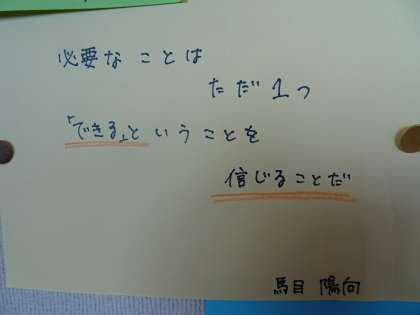 必要なことは
ただ1つ
「できる」ということを
信じることだ
馬目 陽向